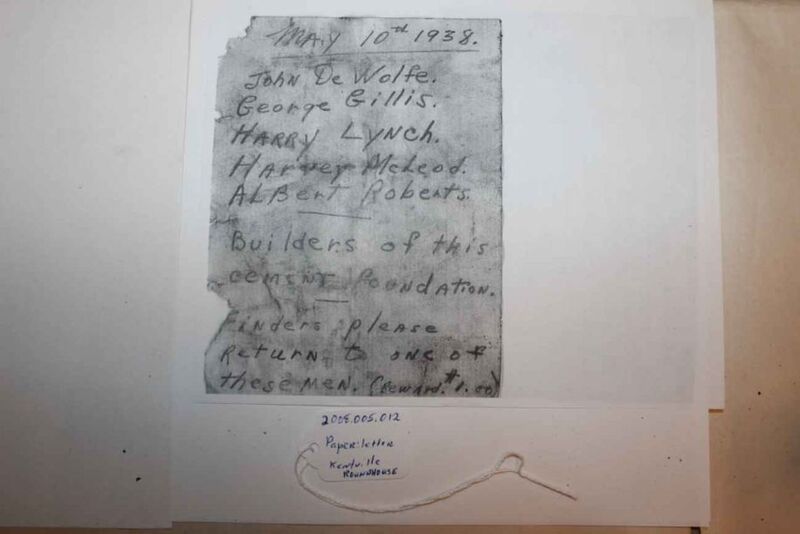 May 10th 1938.
John De Wolfe.
George Gillis.
Harry Lynch.
Harvey McLeod.
Albert Roberts.
Builders of this
cement foundation.
Finders please
return to one of
these men. (Reward. $1.00)
2008.005.012
Paper: letter
Kentville
Roundhouse